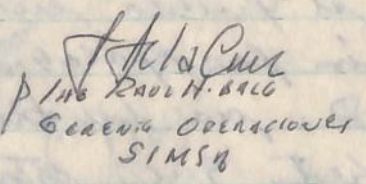 P/ING RAUL H. BACA
GERENTE OPERACIONES
SIMSA